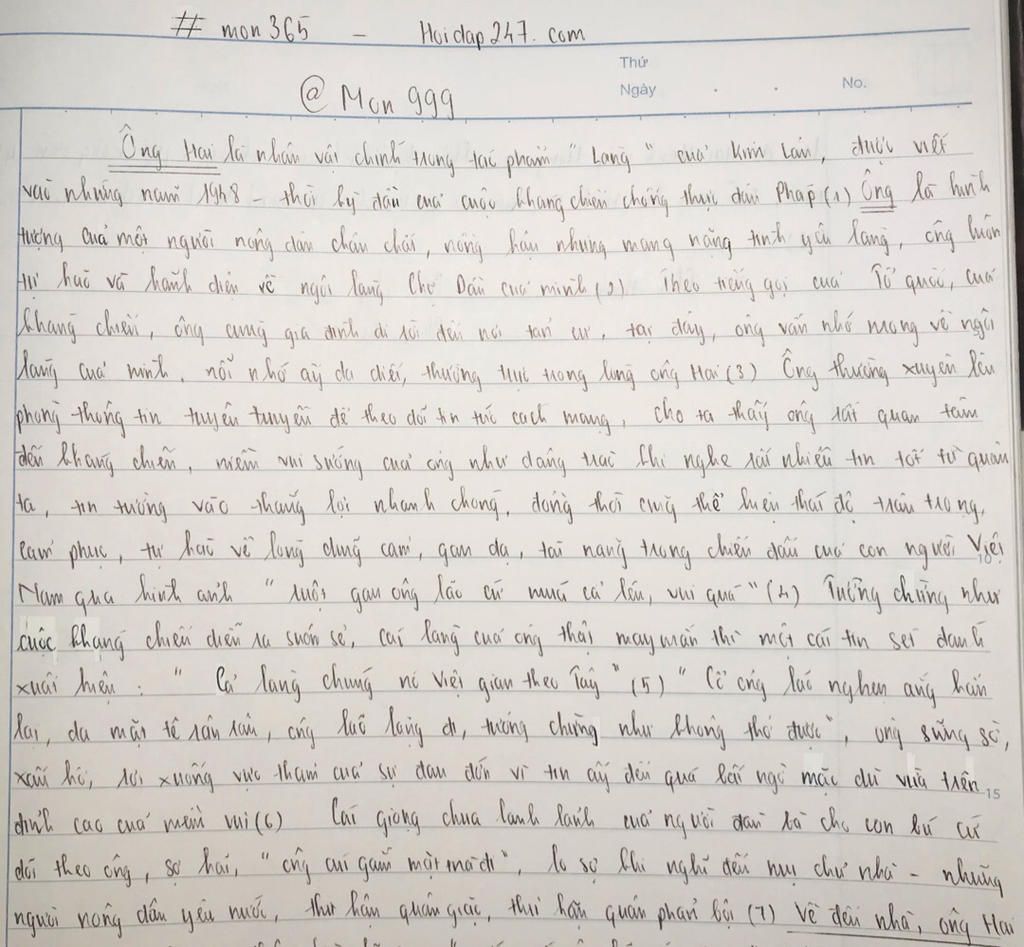 # mon365 – Hoidap247.com
Thứ
Ngày . . No.
@ Mon 999
Ông Hai là nhân vật chính trong tác phẩm "Làng" của Kim Lân, được viết
vào những năm 1948 - thời kỳ đầu của cuộc kháng chiến chống thực dân Pháp (1) Ông là hình
tượng của một người nông dân chân chất, nồng hậu nhưng mang nặng tình yêu làng, ông luôn
tự hào và hãnh diện về ngôi làng Chợ Dầu của mình (2) Theo tiếng gọi của Tổ quốc, của
kháng chiến, ông cùng gia đình đi tới đến nơi tản cư, tại đây, ông vẫn nhớ mong về ngôi
làng của mình. nỗi nhớ ấy da diết, thường trực trong lòng ông Hai (3) Ông thường xuyên lên
phòng thông tin tuyên truyền để theo dõi tin tức cách mạng, cho ta thấy ông rất quan tâm
đến kháng chiến, niềm vui sướng của ông như dâng trào khi nghe rất nhiều tin tốt từ quân
ta, tin tưởng vào thắng lợi nhanh chóng, đồng thời cũng thể hiện thái độ trân trọng,
cảm phục, tự hào về lòng dũng cảm, gan dạ, tài năng trong chiến đấu của con người Việt
10
Nam qua hình ảnh "ruột gan ông lão cứ múa cả lên, vui quá" (4) Tưởng chừng như
cuộc kháng chiến diễn ra suôn sẻ, cái làng của ông thật may mắn thì một cái tin sét đánh
xuất hiện: "Cả làng chúng nó Việt gian theo Tây" (5) "Cổ ông lão nghẹn ắng hẳn
lại, da mặt tê rân rân, ông lão lặng đi, tưởng chừng như không thở được", ông sững sờ,
xấu hổ, rơi xuống vực thẳm của sự đau đớn vì tin ấy đến quá bất ngờ mặc dù vừa trên
15
đỉnh cao của niềm vui (6) Cái giọng chua lanh lảnh của người đàn bà cho con bú cứ
dõi theo ông, sợ hãi, "ông cúi gằm mặt mà đi", lo sợ khi nghĩ đến mụ chủ nhà - những
người nông dân yêu nước, thù hận quân giặc, thù hận quân phản bội (7) Về đến nhà, ông Hai